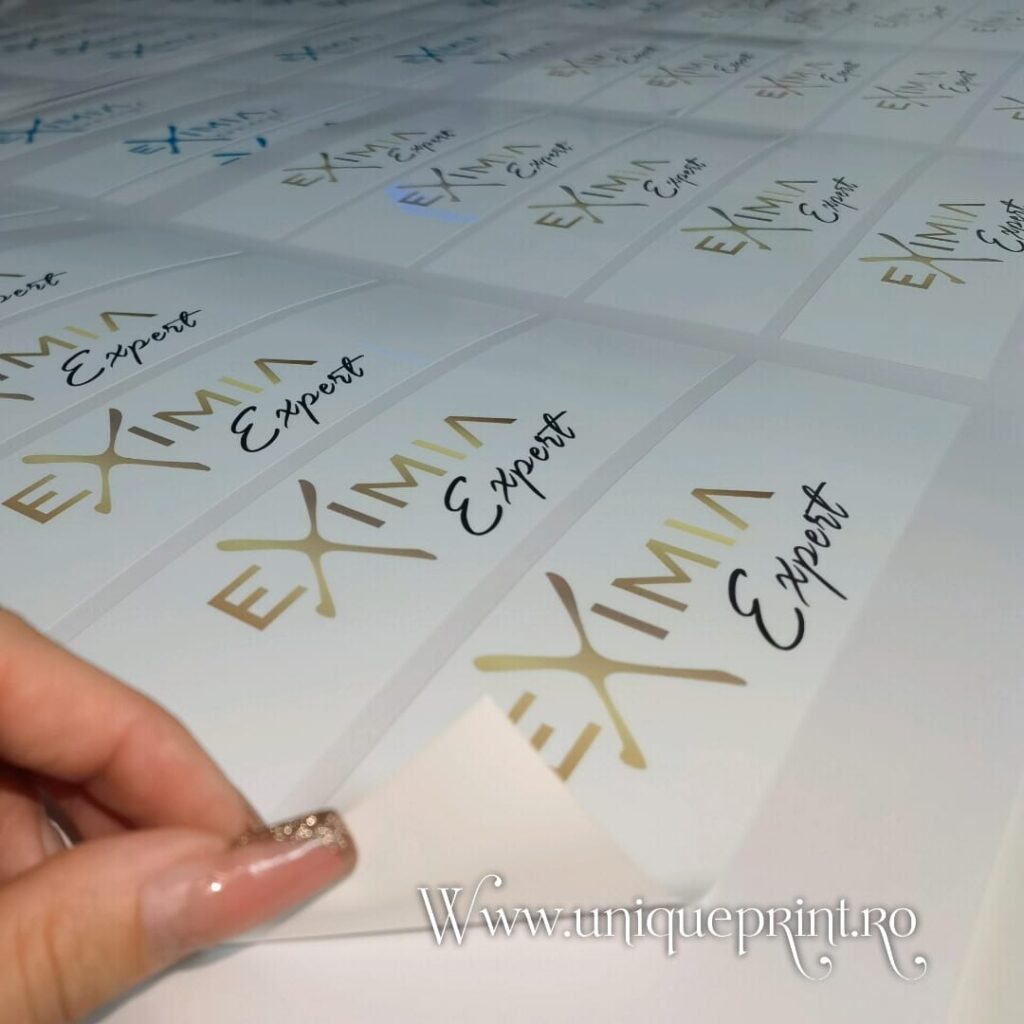 EXIMIA
Expert
EXIMIA
Expert
EXIMIA
Expert
EXIMIA
Expert
EXIMIA
Expert
EXIMIA
Expert
EXIMIA
Expert
EXIMIA
Expert
EXIMIA
Expert
Www.uniqueprint.ro